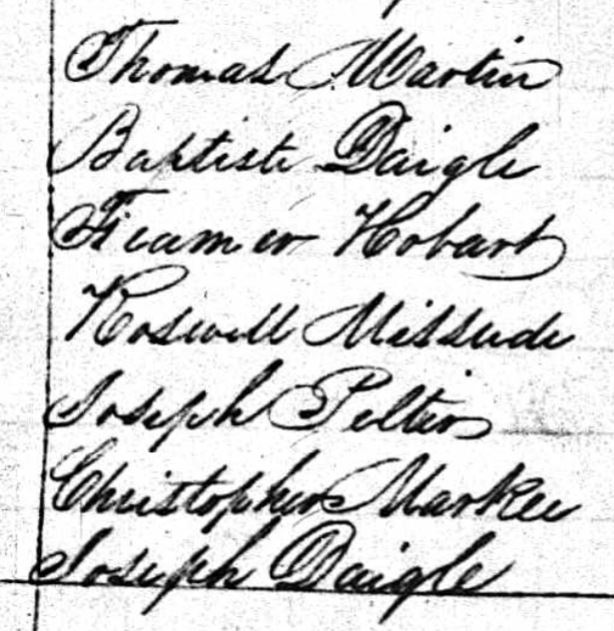 Thomas Martin
Baptiste Daigle
Hobart
Roswell
Joseph Peltier
Christopher Markee
Joseph Daigle